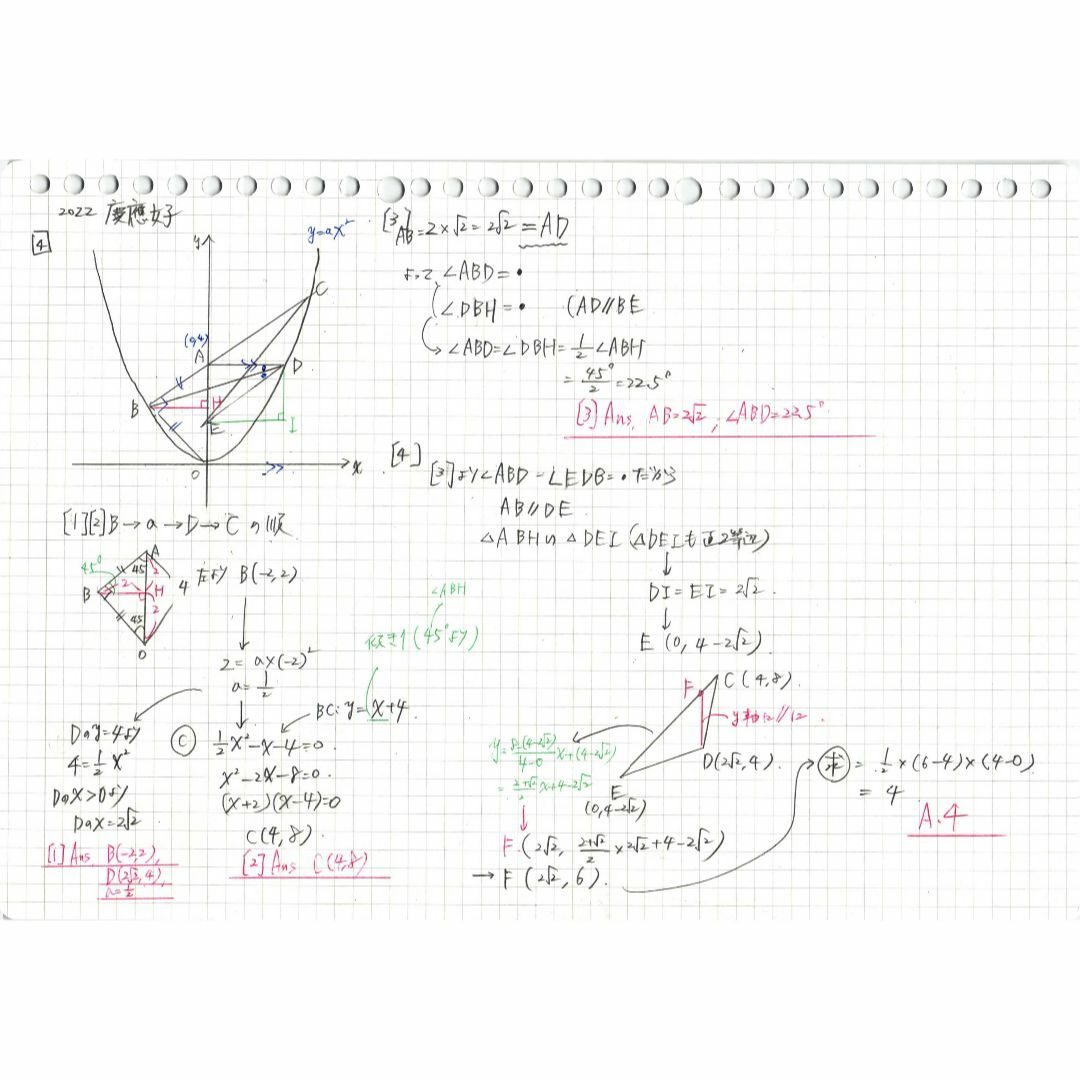 2022 慶應女子
[4]
y=ax²
y
C
(0,4)
A
D
B
H
E
I
O
x
[1][2]B→a→D→Cの順
A
45°
45
2
B
2
H
4
2
45
O
左より B(-2,2)
2=a×(-2)²
a=1/2
∠ABH
傾き1(45°より)
BC:y=x+4
Dのy=4より
4=1/2x²
Dのx>0より
Dのx=2√2
[1]Ans B(-2,2),
D(2√2,4),
a=1/2
Ⓒ 1/2x²-x-4=0.
x²-2x-8=0.
(x+2)(x-4)=0
C(4,8).
[2]Ans C(4,8)
[3]
AB=2×√2=2√2=AD
よって∠ABD=•
∠DBH=• (AD//BE
∠ABD=∠DBH=1/2∠ABH
=45°/2=22.5°
[3]Ans. AB=2√2, ∠ABD=22.5°
[4]
[3]より∠ABD-∠EDB=•だから
AB//DE
△ABH∽△DEI(△DEIも直2等辺)
DI=EI=2√2.
E(0,4-2√2)
F
C(4,8).
y軸に//
D(2√2,4).
E
(0,4-2√2)
y=8-(4-2√2)/4-0 x+(4-2√2)
=2+√2/2 x+4-2√2
F.(2√2, 2+√2/2×2√2+4-2√2)
→F(2√2,6).
㊍=1/2×(6-4)×(4-0)
=4
A.4